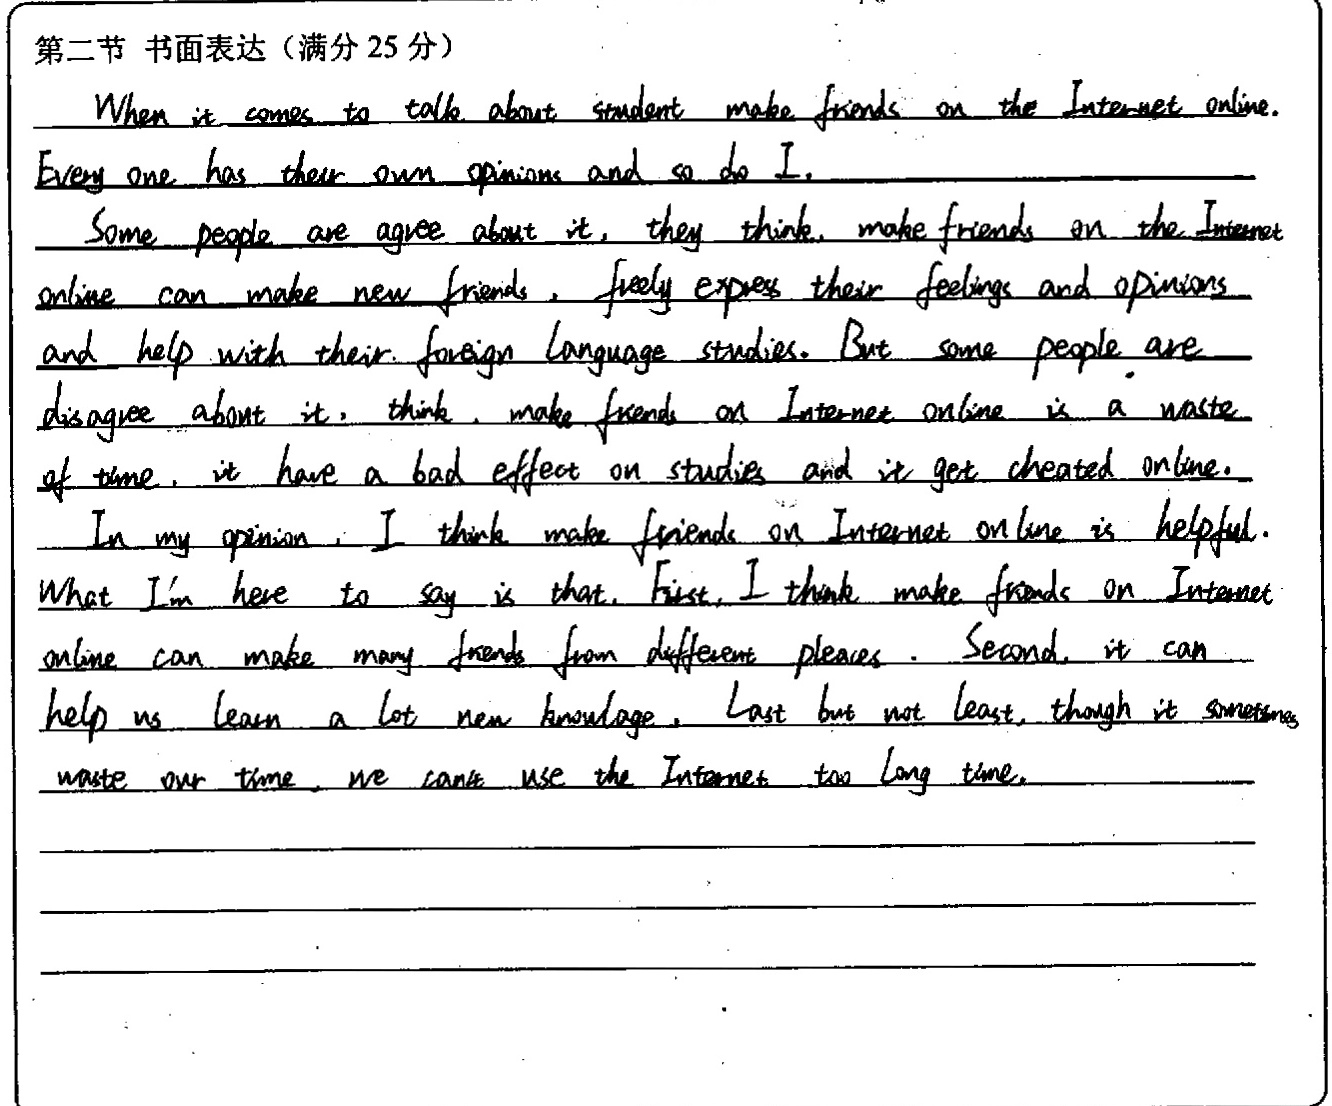 第二节 书面表达（满分 25 分）
When it comes to talk about student make friends on the Internet online.
Every one has their own opinions and so do I.
Some people are agree about it, they think, make friends on the Internet
online can make new friends, freely express their feelings and opinions
and help with their foreign language studies. But some people are
disagree about it, think, make friends on Internet online is a waste
of time, it have a bad effect on studies and it get cheated online.
In my opinion, I think make friends on Internet online is helpful.
What I'm here to say is that. First, I think make friends on Internet
online can make many friends from different pleaces. Second, it can
help us learn a lot new knowlage. Last but not least, though it sometimes
waste our time, we can't use the Internet too long time.